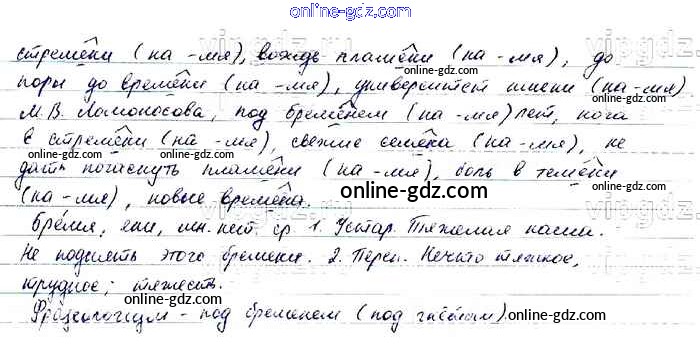 online-gdz.com
стремени (на -мя), вождь племени (на -мя), до
поры до времени (на -мя), университет имени (на -мя)
М.В. Ломоносова, под бременем (на -мя) лет, нога
в стремени (на -мя), свежие семена (на -мя), не
дать погаснуть пламени (на -мя), боль в темени
(на -мя), новые времена.
Бремя, ени, мн. нет. ср. 1. Устар. Тяжелая ноша.
Не поднять этого бремени. 2. Перен. Нечто тяжкое,
трудное; тяжесть.
Фразеологизм - под бременем (под гнётом)